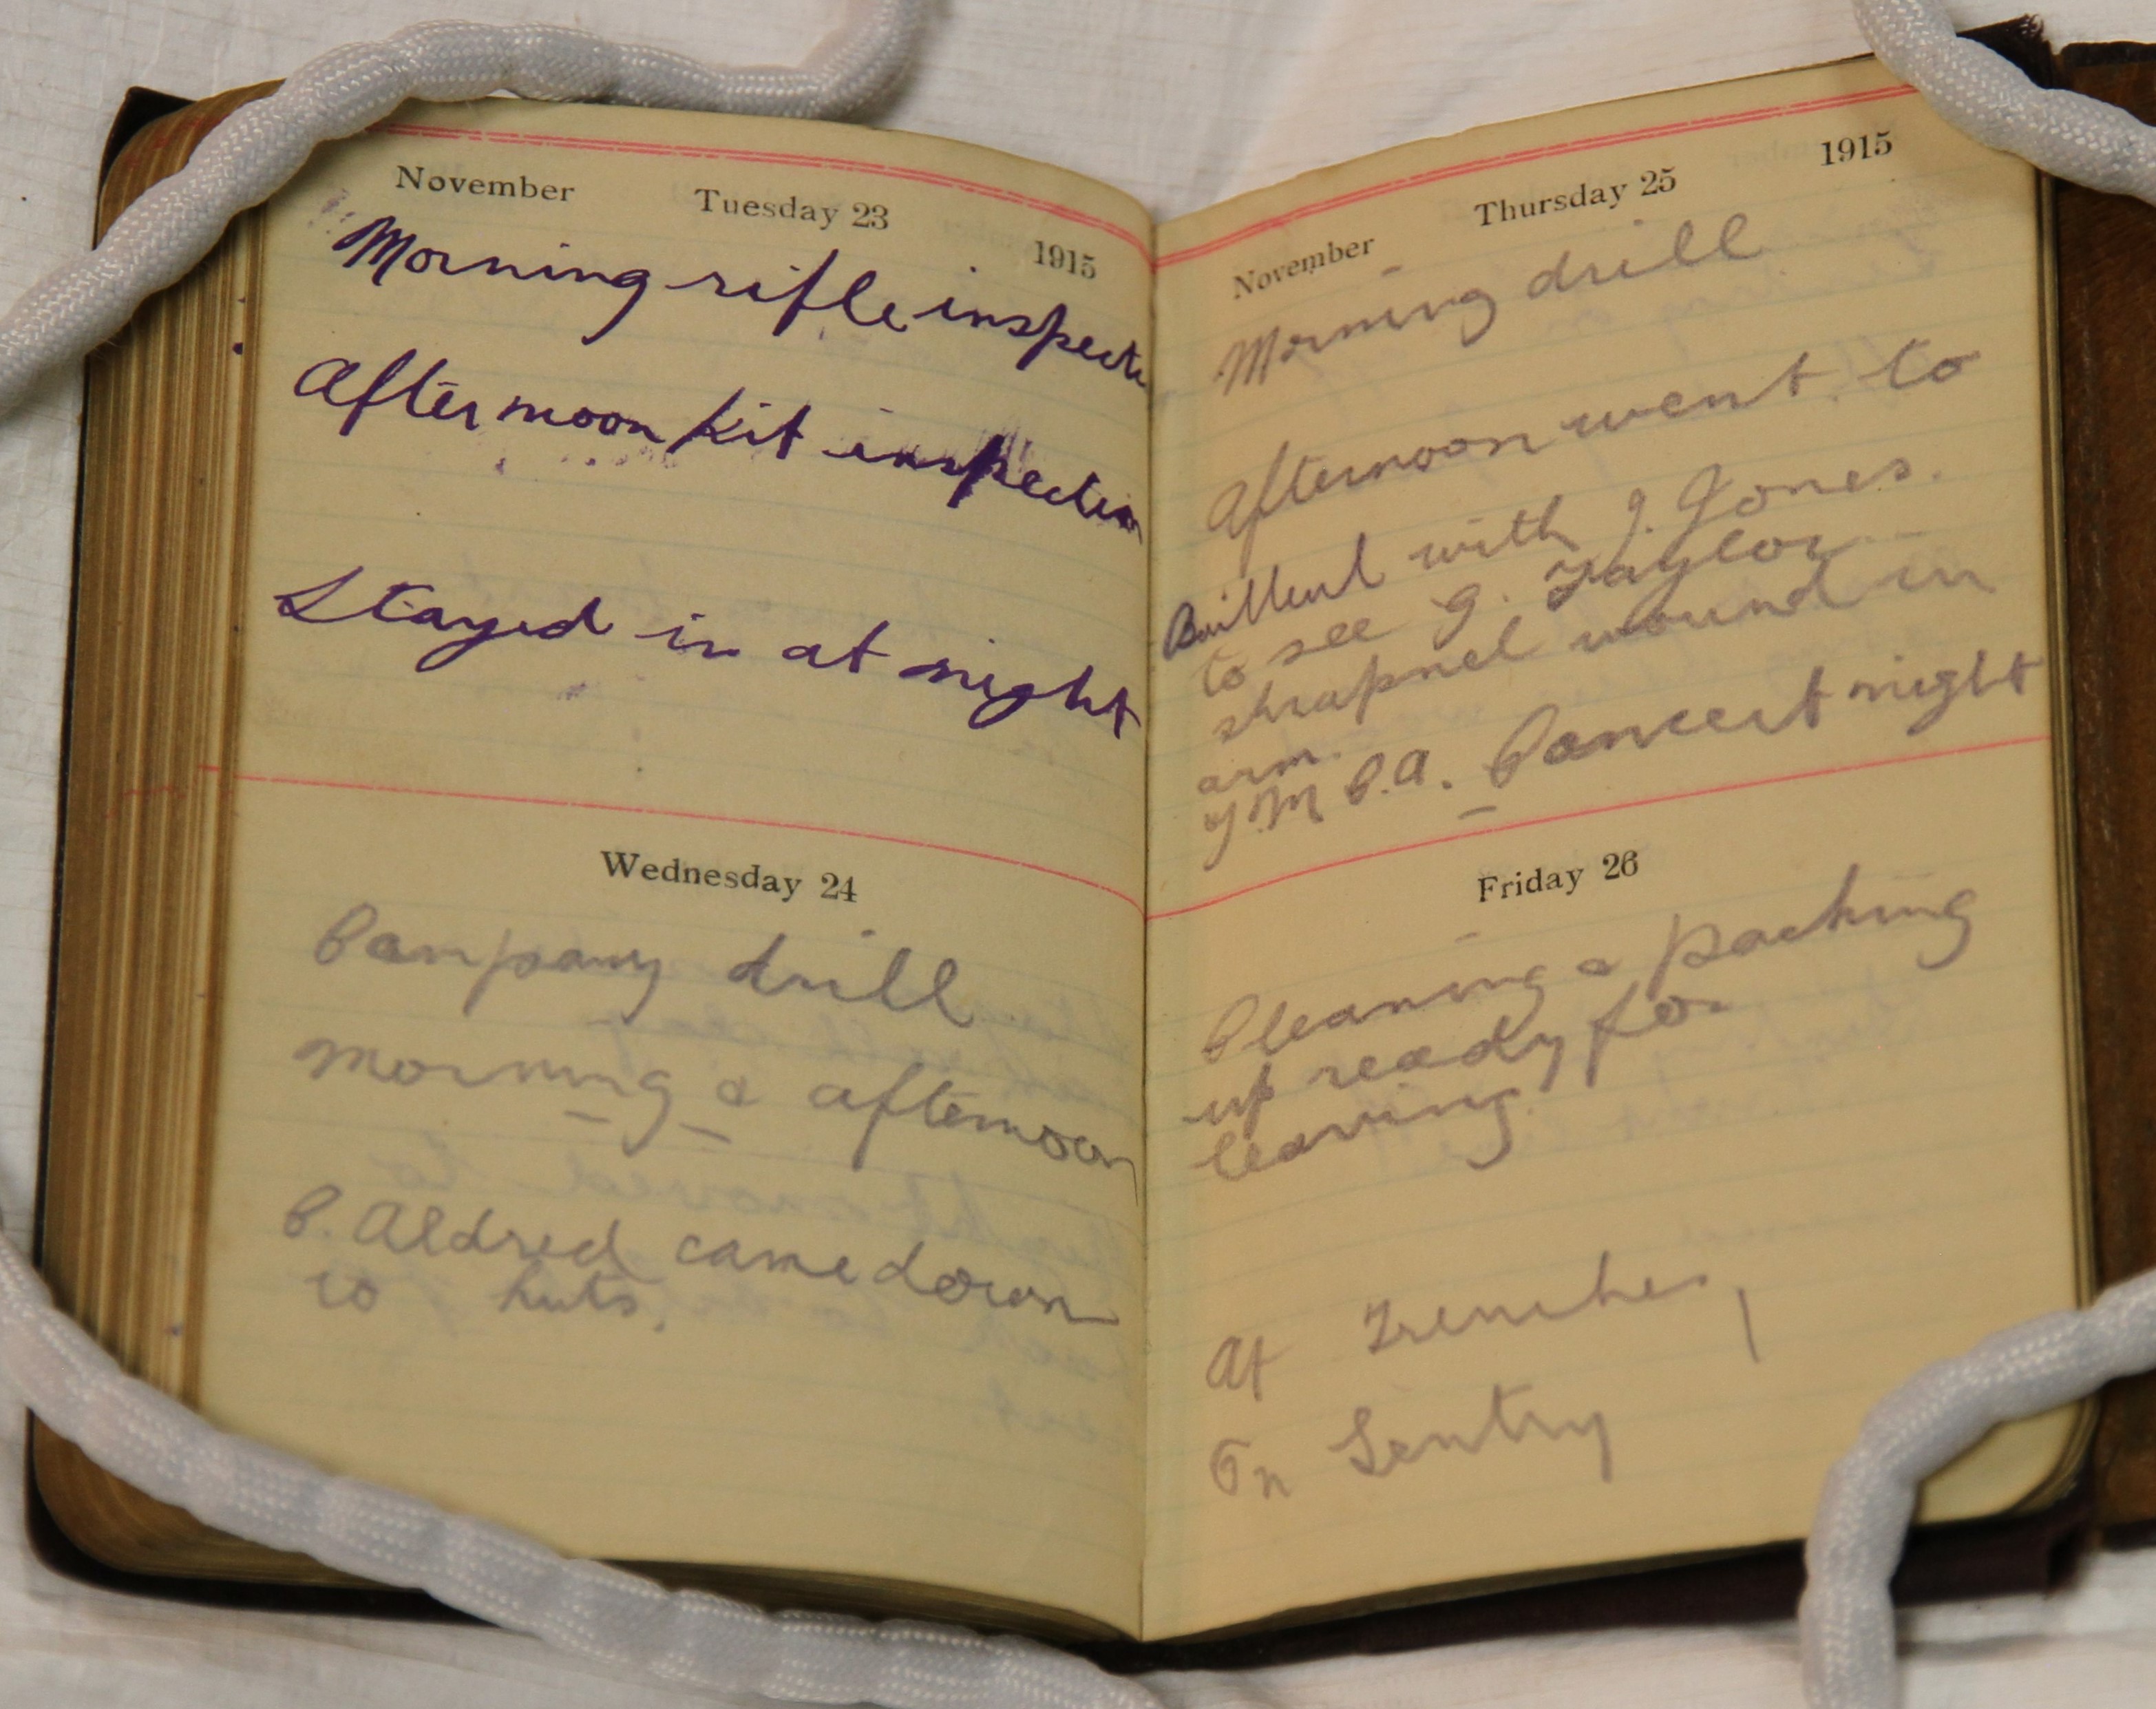 November Tuesday 23 1915
Morning rifle inspecti
Afternoon Kit inspection
Stayed in at night
Wednesday 24
Company drill
morning & afternoon
C. Aldred came down
to huts.
November Thursday 25 1915
Morning drill
Afternoon went to
Bailleul with J. Jones.
to see G. Taylor
shrapnel wound in
arm.
Y.M C.A. Concert night
Friday 26
Cleaning & packing
up ready for
leaving
At Trenches,
On Sentry